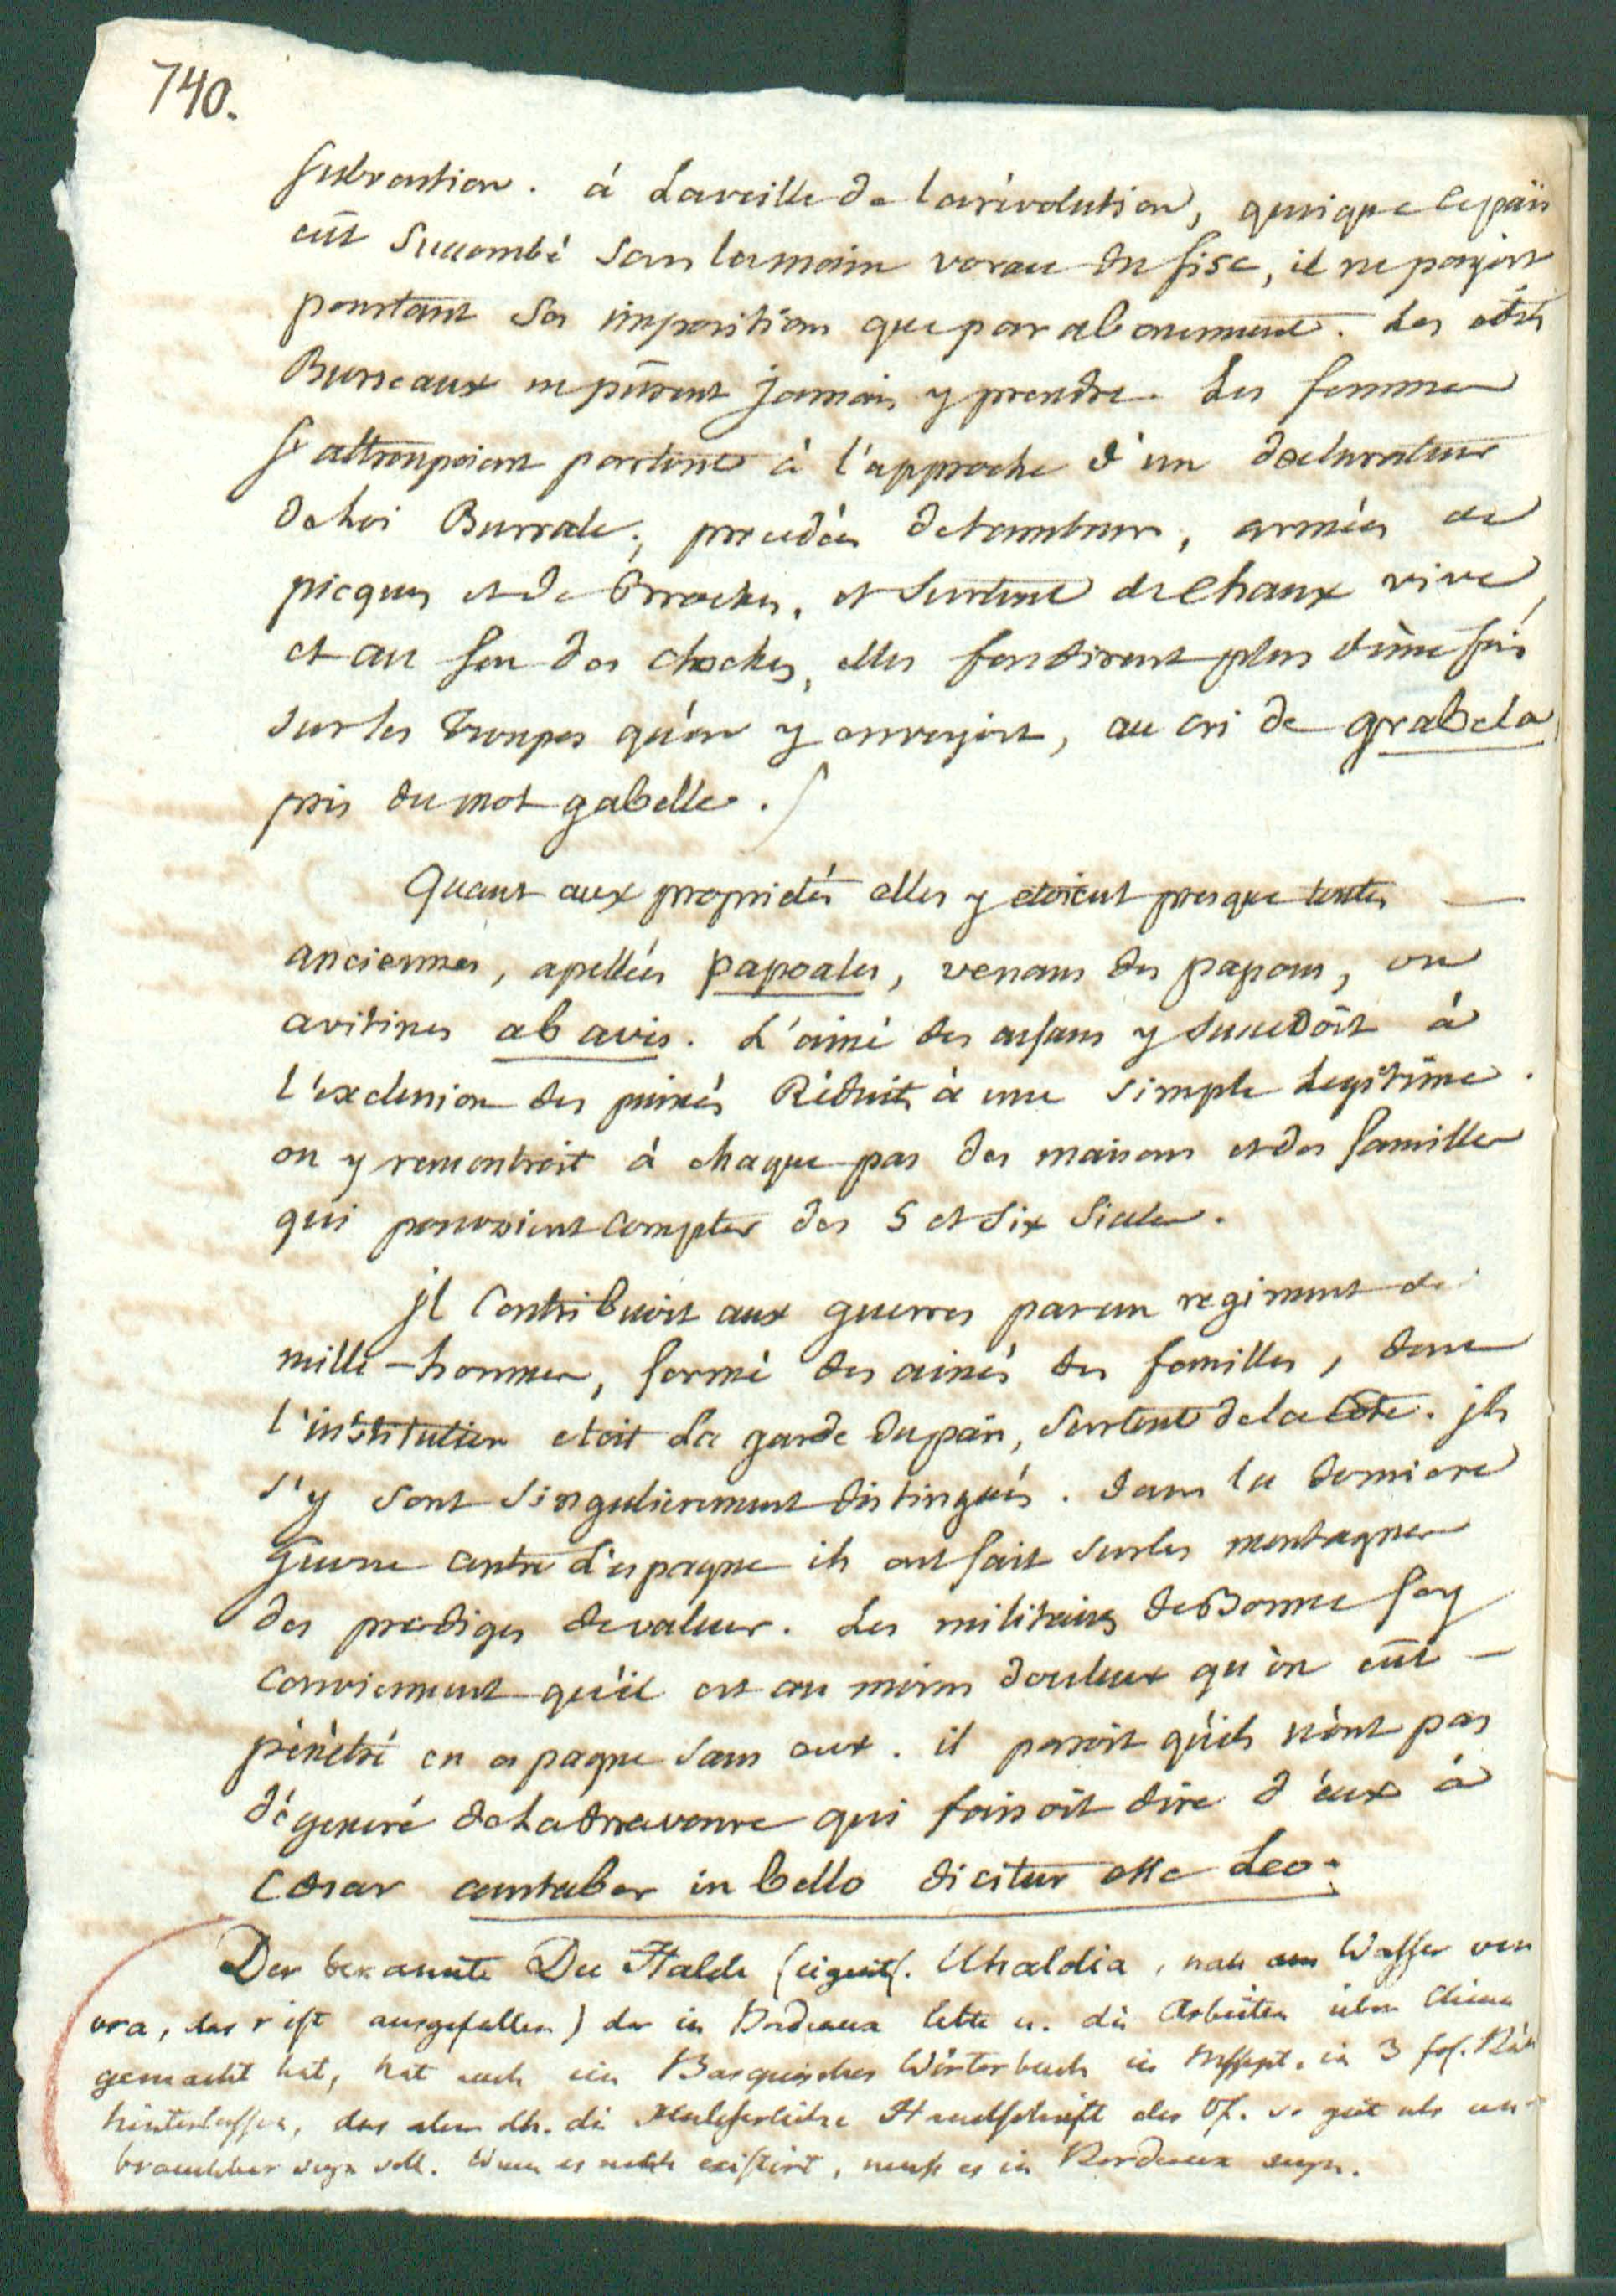 740.
subvention. à La veille de la révolution, quoique le païs
eût Succombé sous les mains vorace du fisc, il ne payoit
pourtant Ses impositions que par abonnement. Les
Bureaux ne pûrent jamais y prendre. Les femmes
s'attroupoient partout à l'approche d'un
de Loi Bursale, precédées de tambours, armées de
picques et de Broches, et Surtout de chaux vive
et au son des cloches, elles fondirent plus d'ùne fois
sur les troupes qu'on y envoyoit, au cri de grabela
pris du mot gabelle.
Quant aux propriétés elles y etoient presque toutes —
anciennes, apellées papoales, venans des papous, ou
avitines ab avis. L'ainé des enfans y succedoit à
l'exclusion des puinés Réduits à une simple Legitime.
on y rencontroit à chaque pas des maisons et des familles
qui pouvoient compter des 5 et Six Siecles.
jl Contribuoit aux guerres par un regiment de
mille-hommes, formé des ainés des familles, dont
l'institution etoit La garde du païs, Surtout de la Côte. jls
s'y sont Singulierement distingués. dans la derniere
Guerre contre L'espagne ils ont fait sur les montagnes
des prodiges de valeur. Les militaires de Bonne foy
conviennent qu'il est au moins douteux qu'on eût —
pénétré en espagne sans eux. il paroit qu'ils n'ont pas
dégeneré de La Bravoure qui faisoit dire d'eux à
Cesar cantaber in bello dicitur esse Leo.
Der bekannte Du Halde (eigentl. Uhaldia, nah am Wasser von
ura, das r ist ausgefallen) der in Bordeaux lebte u. die Arbeiten über China
gemacht hat, hat auch ein Basquisches Wörterbuch in Msscpt. in 3 fol.
hinterlassen, das aber dh. die Unleserliche Handschrift des Vf. so gut als un-
brauchbar seyn soll. Wenn es noch existirt, muß es in Bordeaux seyn.